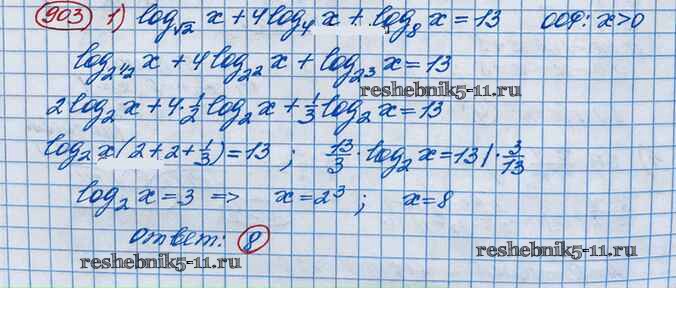 903 1) log_√2 x + 4log_4 x + log_8 x = 13 ООФ: x>0
log_2^1/2 x + 4log_2^2 x + log_2^3 x = 13
reshebnik5-11.ru
2log_2 x + 4·1/2 log_2 x + 1/3 log_2 x = 13
log_2 x(2+2+1/3) = 13 ; 13/3 · log_2 x = 13 | · 3/13
log_2 x = 3 => x = 2^3 ; x = 8
ответ: 8
reshebnik5-11.ru reshebnik5-11.ru